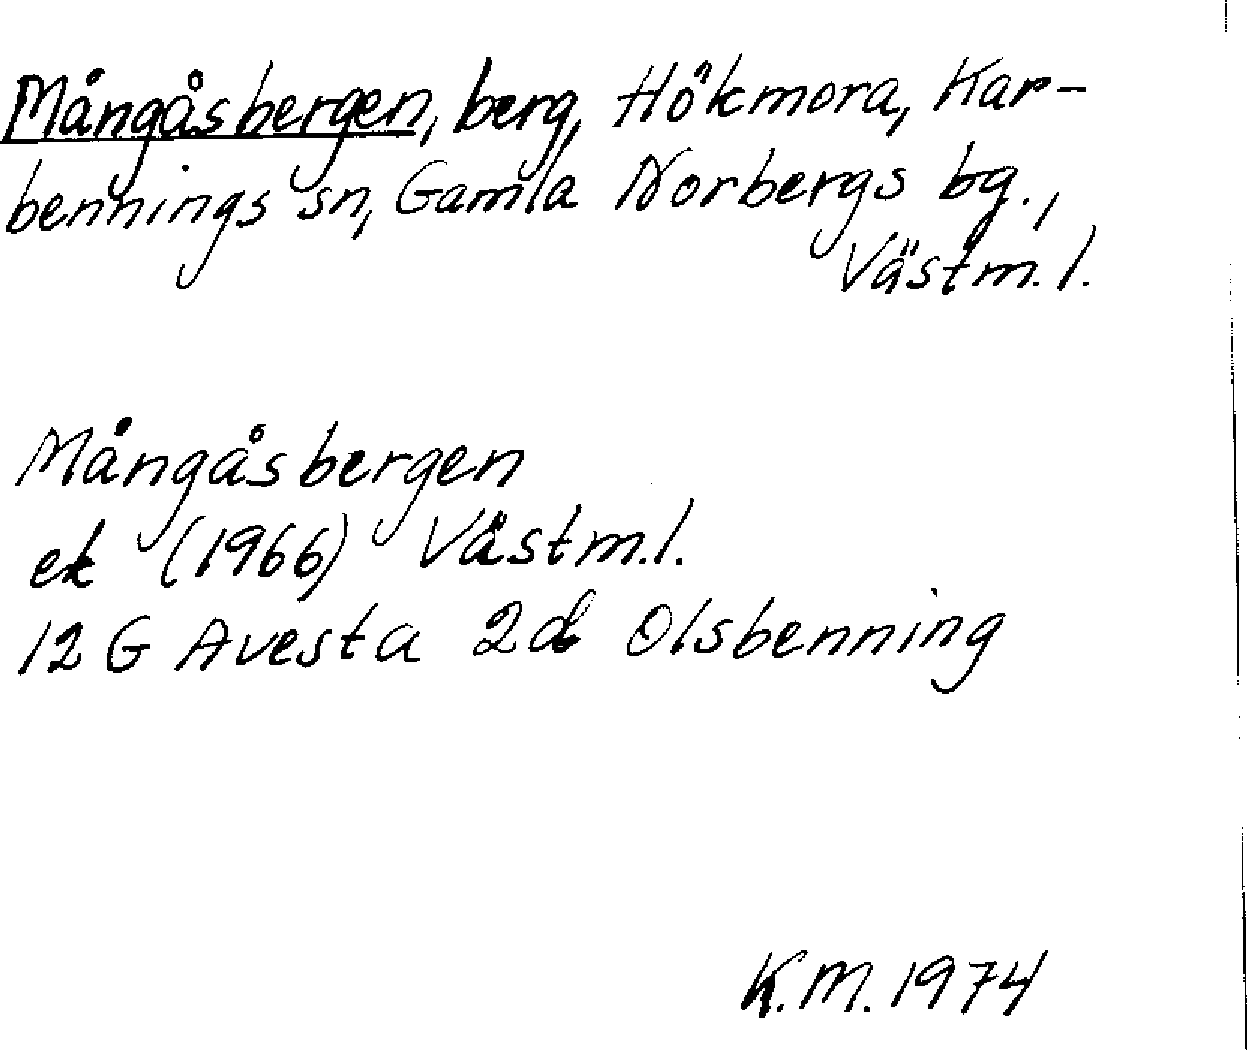 Mångåsbergen, berg, Hökmora, Kar-
bennings sn, Gamla Norbergs bg.,
Västm.l.
Mångåsbergen
ek (1966) Västm.l.
12 G Avesta 2d Olsbenning
K.M. 1974